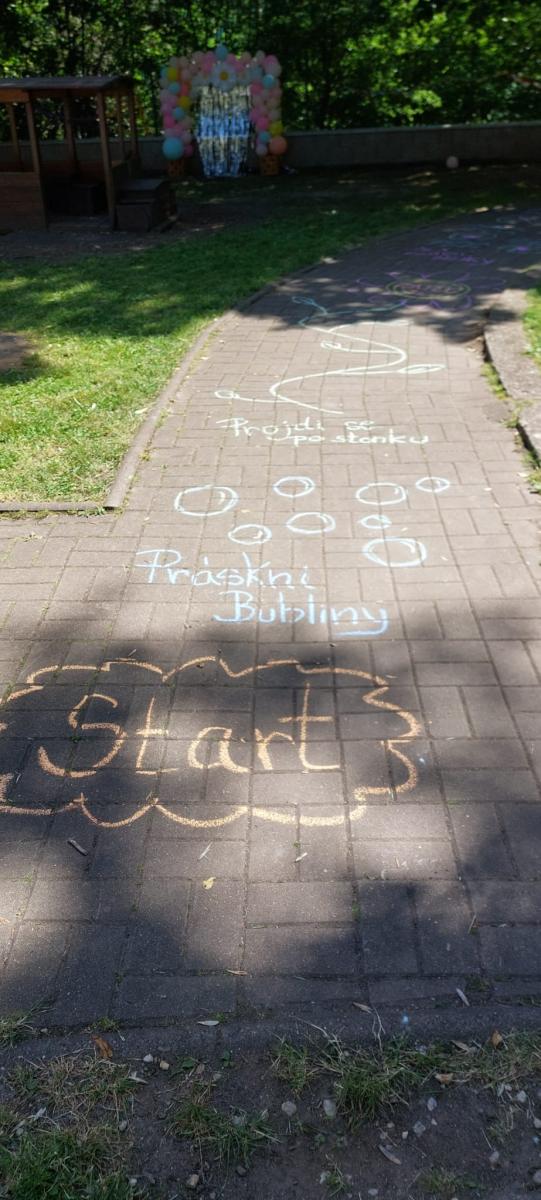 Start
Práskni
Bubliny
Projdi se
po stonku